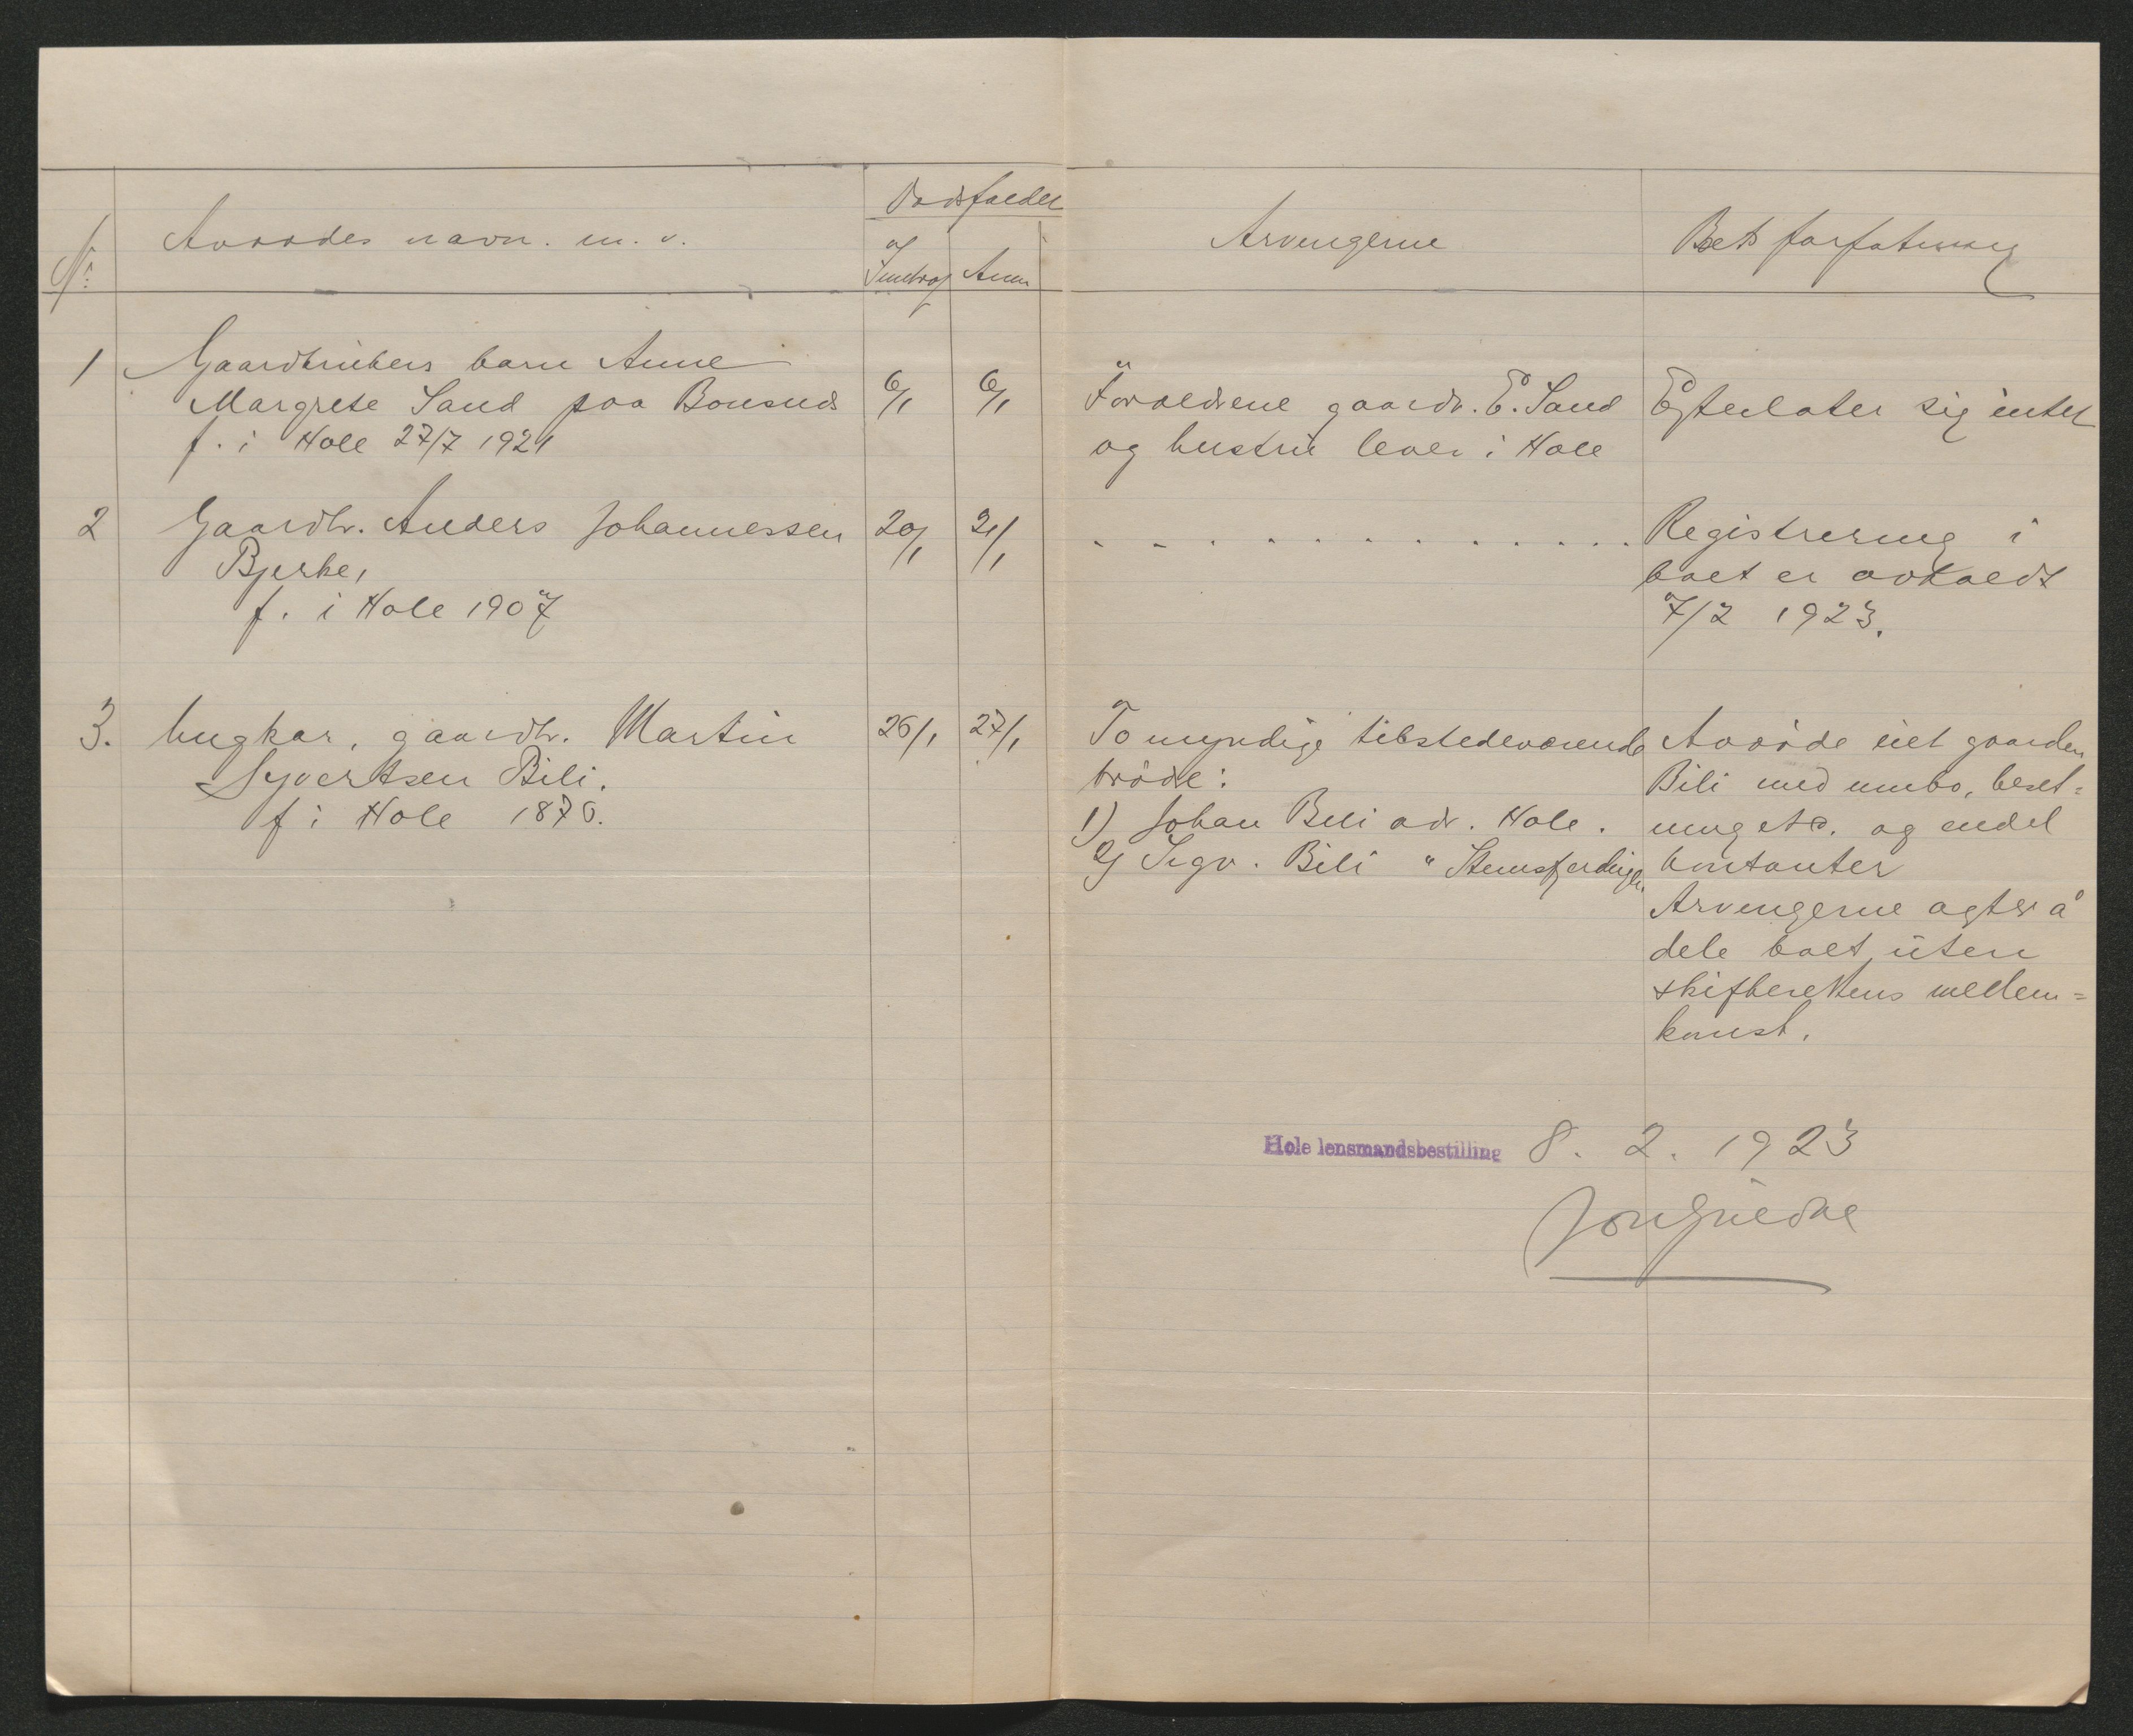 Nr.
Avdødes navn. m. v.
Dødsfaldet
Indtraf
Anm
Arvingerne
Boets forfatning
1
Gaardbrukers barn Anne
Margrete Sand paa Bonsnes
f. i Hole 27/7 1921
6/1
6/1
Forældrene gaardbr. E. Sand
og hustru lever i Hole
Efterlater sig intet
2
Gaardbr. Anders Johannessen
Bjerke,
f. i Hole 1907
20/1
21/1
. . . . . . . . . . . . .
Registrering i
boet er avholdt
7/2 1923.
3.
Ungkar, gaardbr. Martin
Syvertsen Bili.
f i Hole 1876.
26/1
27/1
To myndige tilstedeværende
brødre:
1) Johan Bili adr. Hole.
2) Sigv. Bili " Stensfjerdingen
Avdøde eiet gaarden
Bili med innbo, beset=
ning etc. og endel
kontanter
Arvingerne agter å
dele boet uten
skifterettens mellem=
komst.
Hole lensmandsbestilling 8. 2. 1923